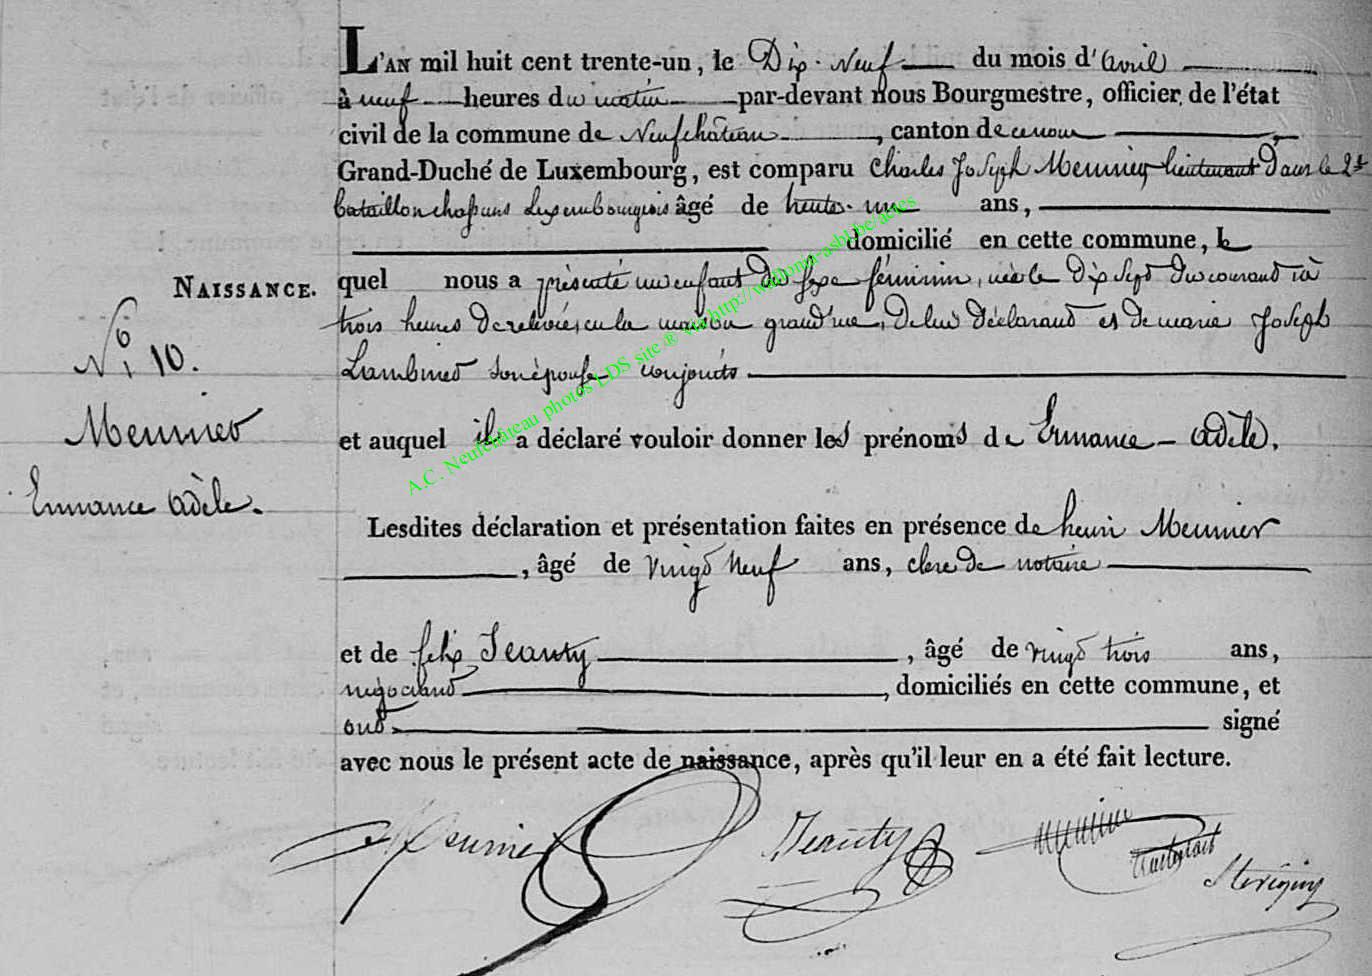 L'AN mil huit cent trente-un, le Dix-Neuf du mois d'avril
à neuf heures du matin par-devant nous Bourgmestre, officier de l'état
civil de la commune de Neufchâteau, canton de
Grand-Duché de Luxembourg, est comparu Charles Joseph Meunier lieutenant Dans le 2e
bataillon chasseurs Luxembourgeois âgé de trente-un ans,
domicilié en cette commune, le
NAISSANCE. quel nous a présenté un enfant du sexe féminin, née le Dix Sept Du courant à
trois heures De relevée, en la maison grand'rue, De lui Déclarant et de marie Joseph
N° 10. Lambinet son épouse conjoints
Meunier et auquel il a déclaré vouloir donner les prénoms de Ermance - adèle.
Ermance Adèle.
Lesdites déclaration et présentation faites en présence de henri Meunier
, âgé de vingt Neuf ans, clerc De notaire
et de felix Jeanty, âgé de vingt trois ans,
négociant, domiciliés en cette commune, et
ont signé
avec nous le présent acte de naissance, après qu'il leur en a été fait lecture.
Meunier Jeanty
A.C. Neufchâteau photos LDS site ® via http://wallonia-asbl.be/actes